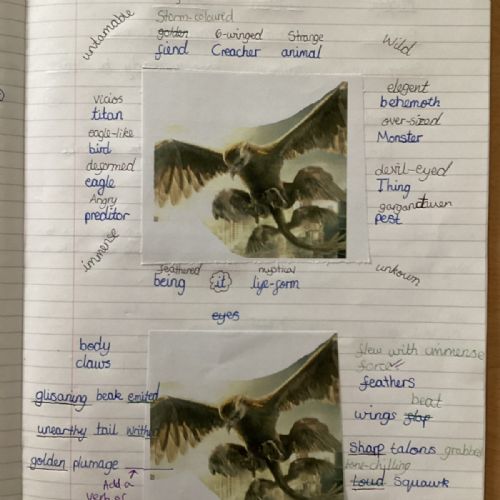 untamable
Storm-coloured
golden 6-winged Strange
fiend Creacher animal
Wild
vicios
titan
eagle-like
bird
deformed
eagle
Angry
preditor
immense
elegent
behemoth
over-sized
Monster
devil-eyed
Thing
pest
unkown
feathered mystical
being it lije-form
eyes
body
claws
glisaning beak emited
unearthy tail
golden plumage
Add a
verb or
flew with immense
force
feathers
beat
wings flap
Sharp talons grabbed
bone-chilling
Loud Squawk